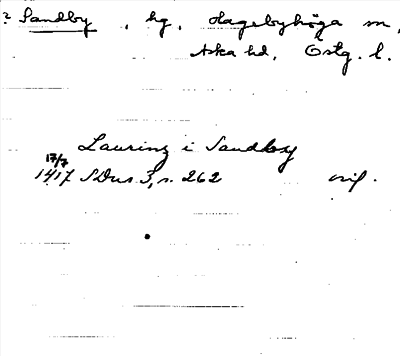 ? Sandby, hg, Hagebyhöga sn,
Aska hd, Östg. l.
Laurinz i Sandby
17/7
1417 SDns 3, s. 262 orig.